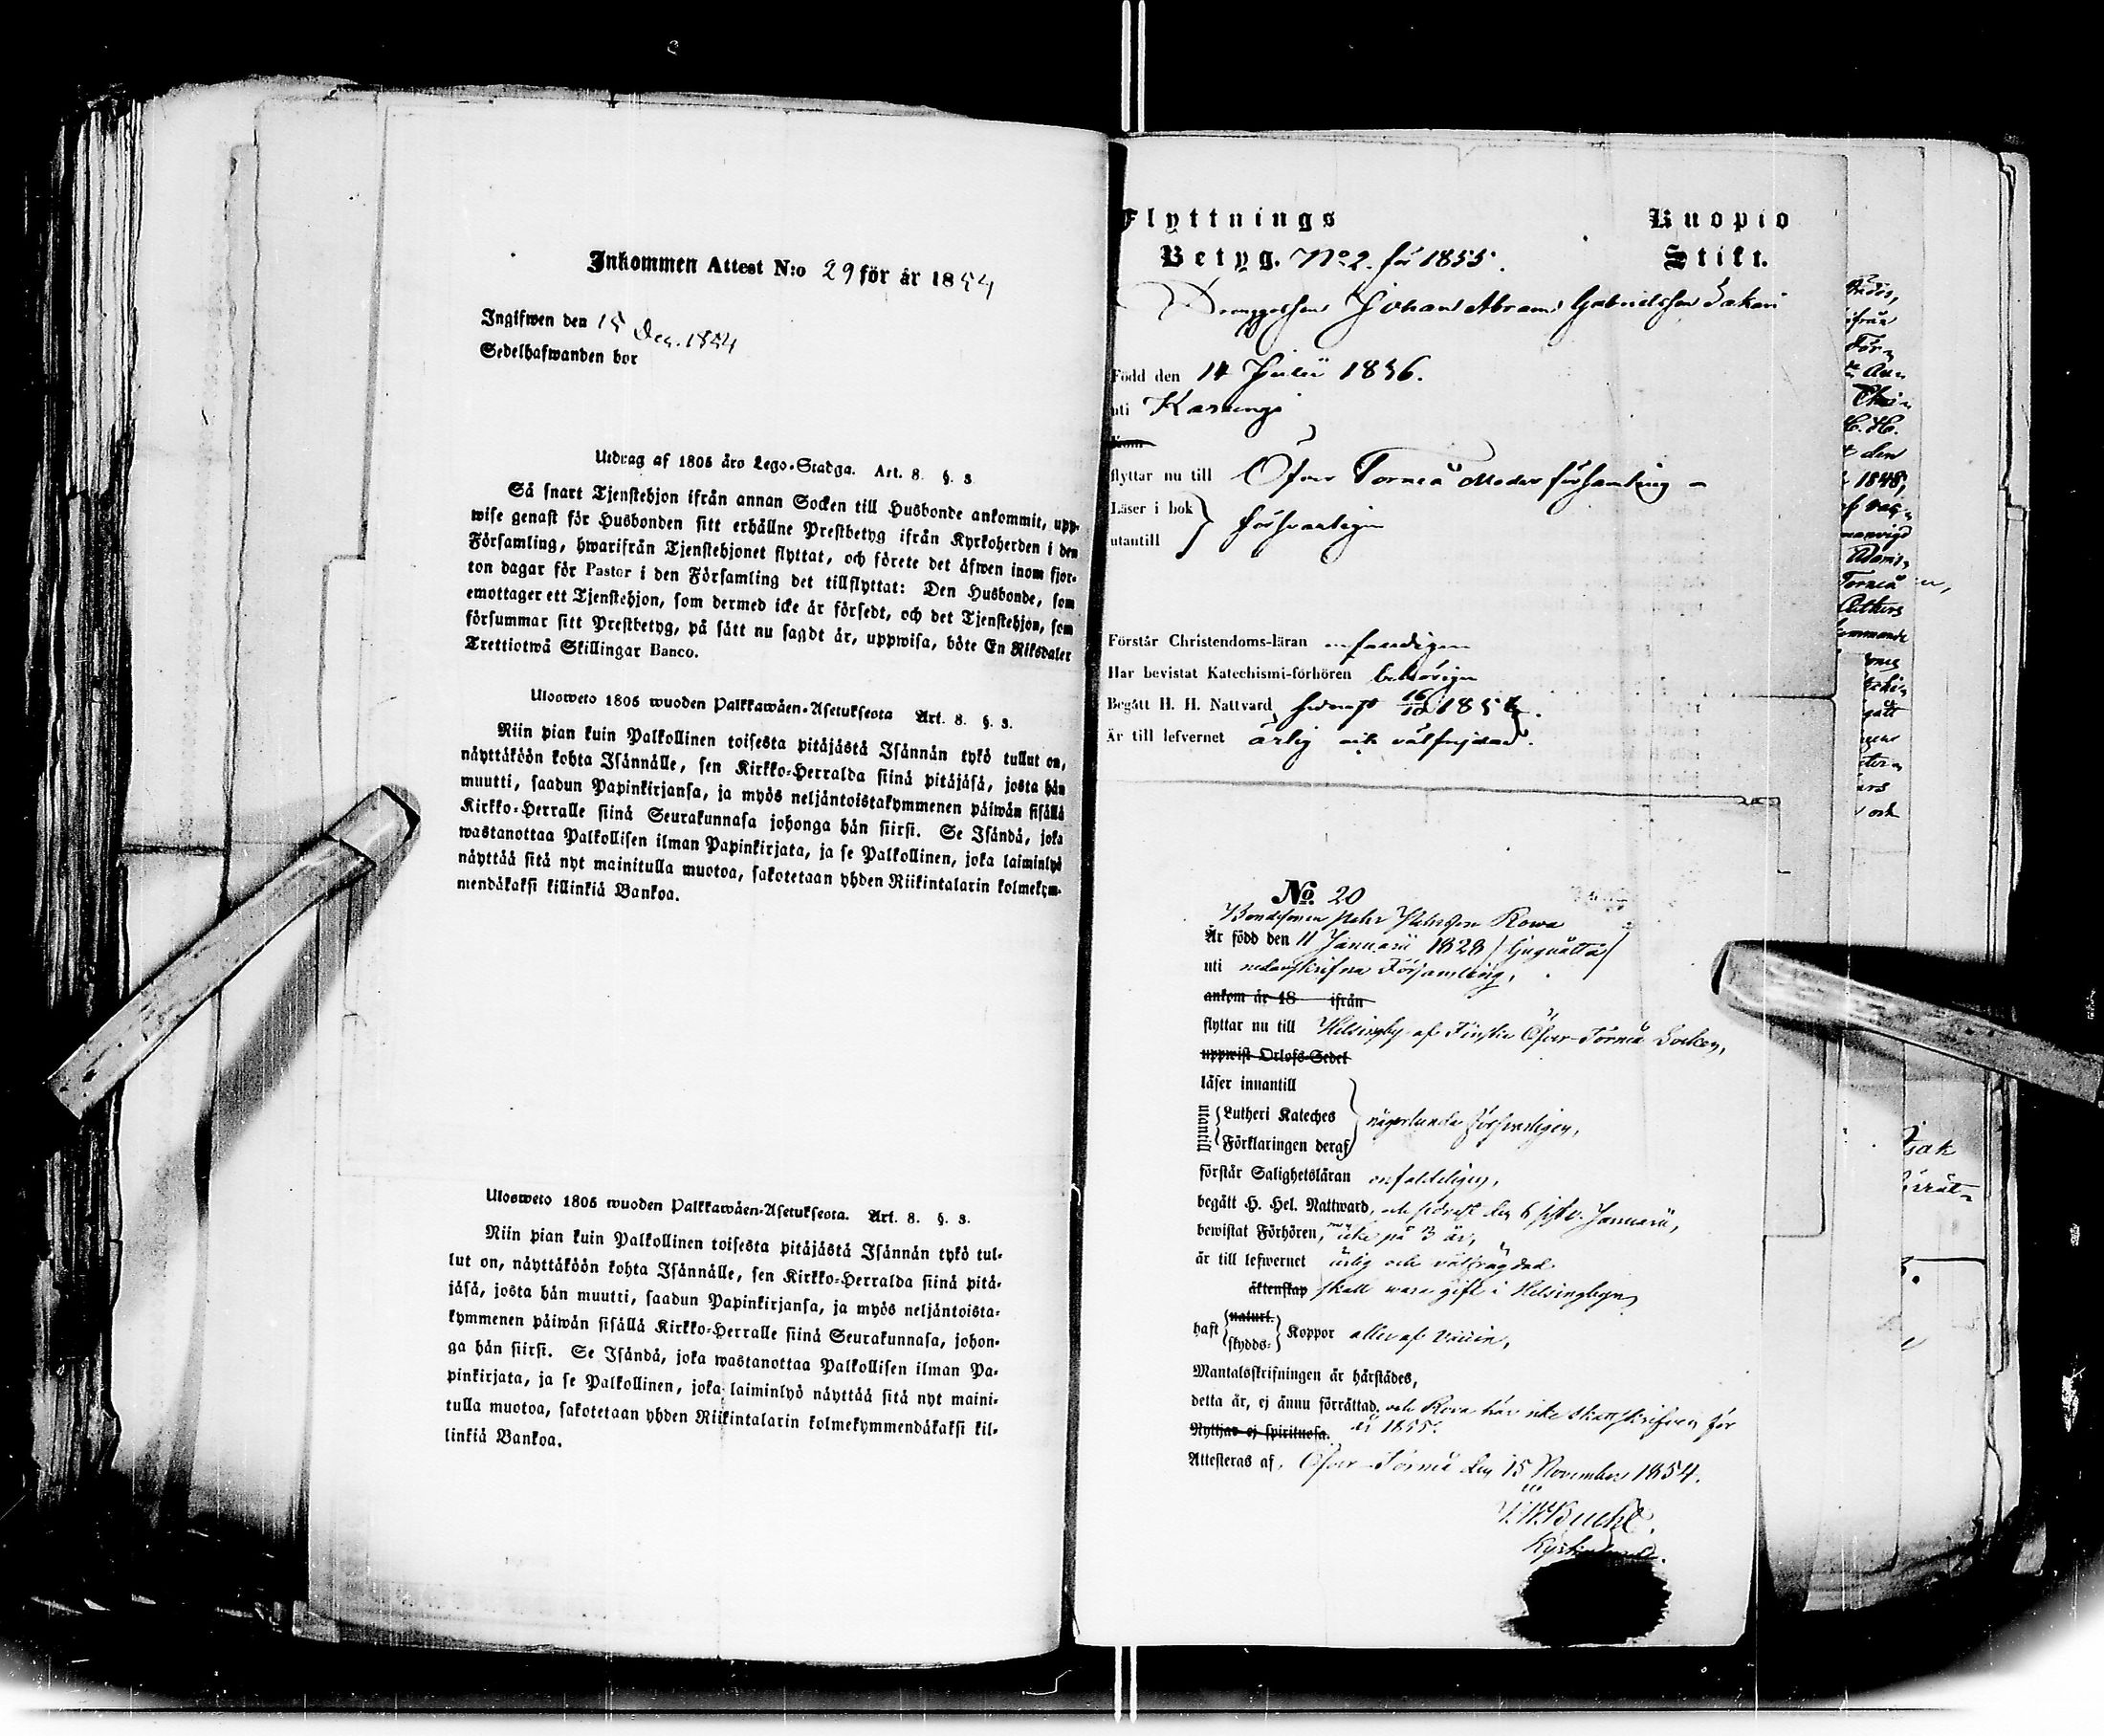 Inkommen Attest N:o 29 för år 1854
Ingifwen den 15 Dec. 1854
Sedelhafwanden bor
Utdrag af 1805 års Lego-Stadga. Art. 8. §. 3
Så snart Tjenstehjon ifrån annan Socken till Husbonde ankommit, upp-
wise genast för Husbonden sitt erhållne Prestbetyg ifrån Kyrkoherden i den
Församling, hwarifrån Tjenstehjonet flyttat, och förete det äfwen inom fjor-
ton dagar för Pastor i den Församling det tillflyttat: Den Husbonde, som
emottager ett Tjenstehjon, som dermed icke är försedt, och det Tjenstehjon, som
försummar sitt Prestbetyg, på sätt nu sagdt är, uppwisa, böte En Riksdaler
Trettiotwå Skillingar Banco.
Ulosweto 1805 wuoden Palkkawäen-Asetuksesta Art. 8. §. 3.
Niin pian kuin Palkollinen toisesta pitäjästä Isännän tykö tullut on,
näyttäköön kohta Isännälle, sen Kirkko-Herralda siinä pitäjäsä, josta hän
muutti, saadun Papinkirjansa, ja myös neljäntoistakymmenen päiwän sisällä
Kirkko-Herralle siinä Seurakunnasa johonga hän siirsi. Se Isändä, joka
wastanottaa Palkollisen ilman Papinkirjata, ja se Palkollinen, joka laiminlyö
näyttää sitä nyt mainitulla muotoa, sakotetaan yhden Riikintalarin kolmekym-
mendäkaksi killinkiä Bankoa.
Ulosweto 1805 wuoden Palkkawäen-Asetuksesta. Art. 8. §. 3.
Niin pian kuin Palkollinen toisesta pitäjästä Isännän tykö tul-
lut on, näyttäköön kohta Isännälle, sen Kirkko-Herralda siinä pitä-
jäsä, josta hän muutti, saadun Papinkirjansa, ja myös neljäntoista-
kymmenen päiwän sisällä Kirkko-Herralle siinä Seurakunnasa, johon-
ga hän siirsi. Se Isändä, joka wastanottaa Palkollisen ilman Pa-
pinkirjata, ja se Palkollinen, joka laiminlyö näyttää sitä nyt maini-
tulla muotoa, sakotetaan yhden Riikintalarin kolmekymmendäkaksi kil-
linkiä Bankoa.
Flyttnings Kuopio
Betyg. No 2. för 1855. Stift.
Johan Abram Gabrielsson
Född den 14 Julii 1836.
uti Karungi
Kom
flyttar nu till Öfver Torneå Moder församling
Läser i bok
utantill } försvarligen
Förstår Christendoms-läran enfaldigen
Har bevistat Katechismi-förhören behörigen
Begått H. H. Nattvard senast 16/10 1854.
Är till lefvernet ärlig och välfrejdad.
No. 20
Bondsonen Pehr Pehrsson Rowa
Är född den 11 Januarii 1828 /tjuguåtta/
uti nedanskrifna Församling,
ankom år 18 ifrån
flyttar nu till Helsingby af Finska Öfver-Torneå Socken,
uppwist Orlofs-Sedel
läser innantill
utantill { Lutheri Kateches
Förklaringen deraf } någorlunda försvarligen,
förstår Salighetsläran enfaldeligen,
begått H. Hel. Nattward, och sednast den 6 sistl. Januarii,
bewistat Förhören, men icke på 3 år,
är till lefwernet ärlig och välfrägdad
äktenskap skall wara gift i Helsingbyn
haft { naturl.
skydds- } Koppor eller af Vaccin,
Mantalsskrifningen är härstädes,
detta år, ej ännu förrättad, och Rowa här icke skattskrifven för
år 1855.
Nyttjar ej spirituosa.
Attesteras af, Öfver-Torneå den 15 November 1854.
1848,
Torneå
och